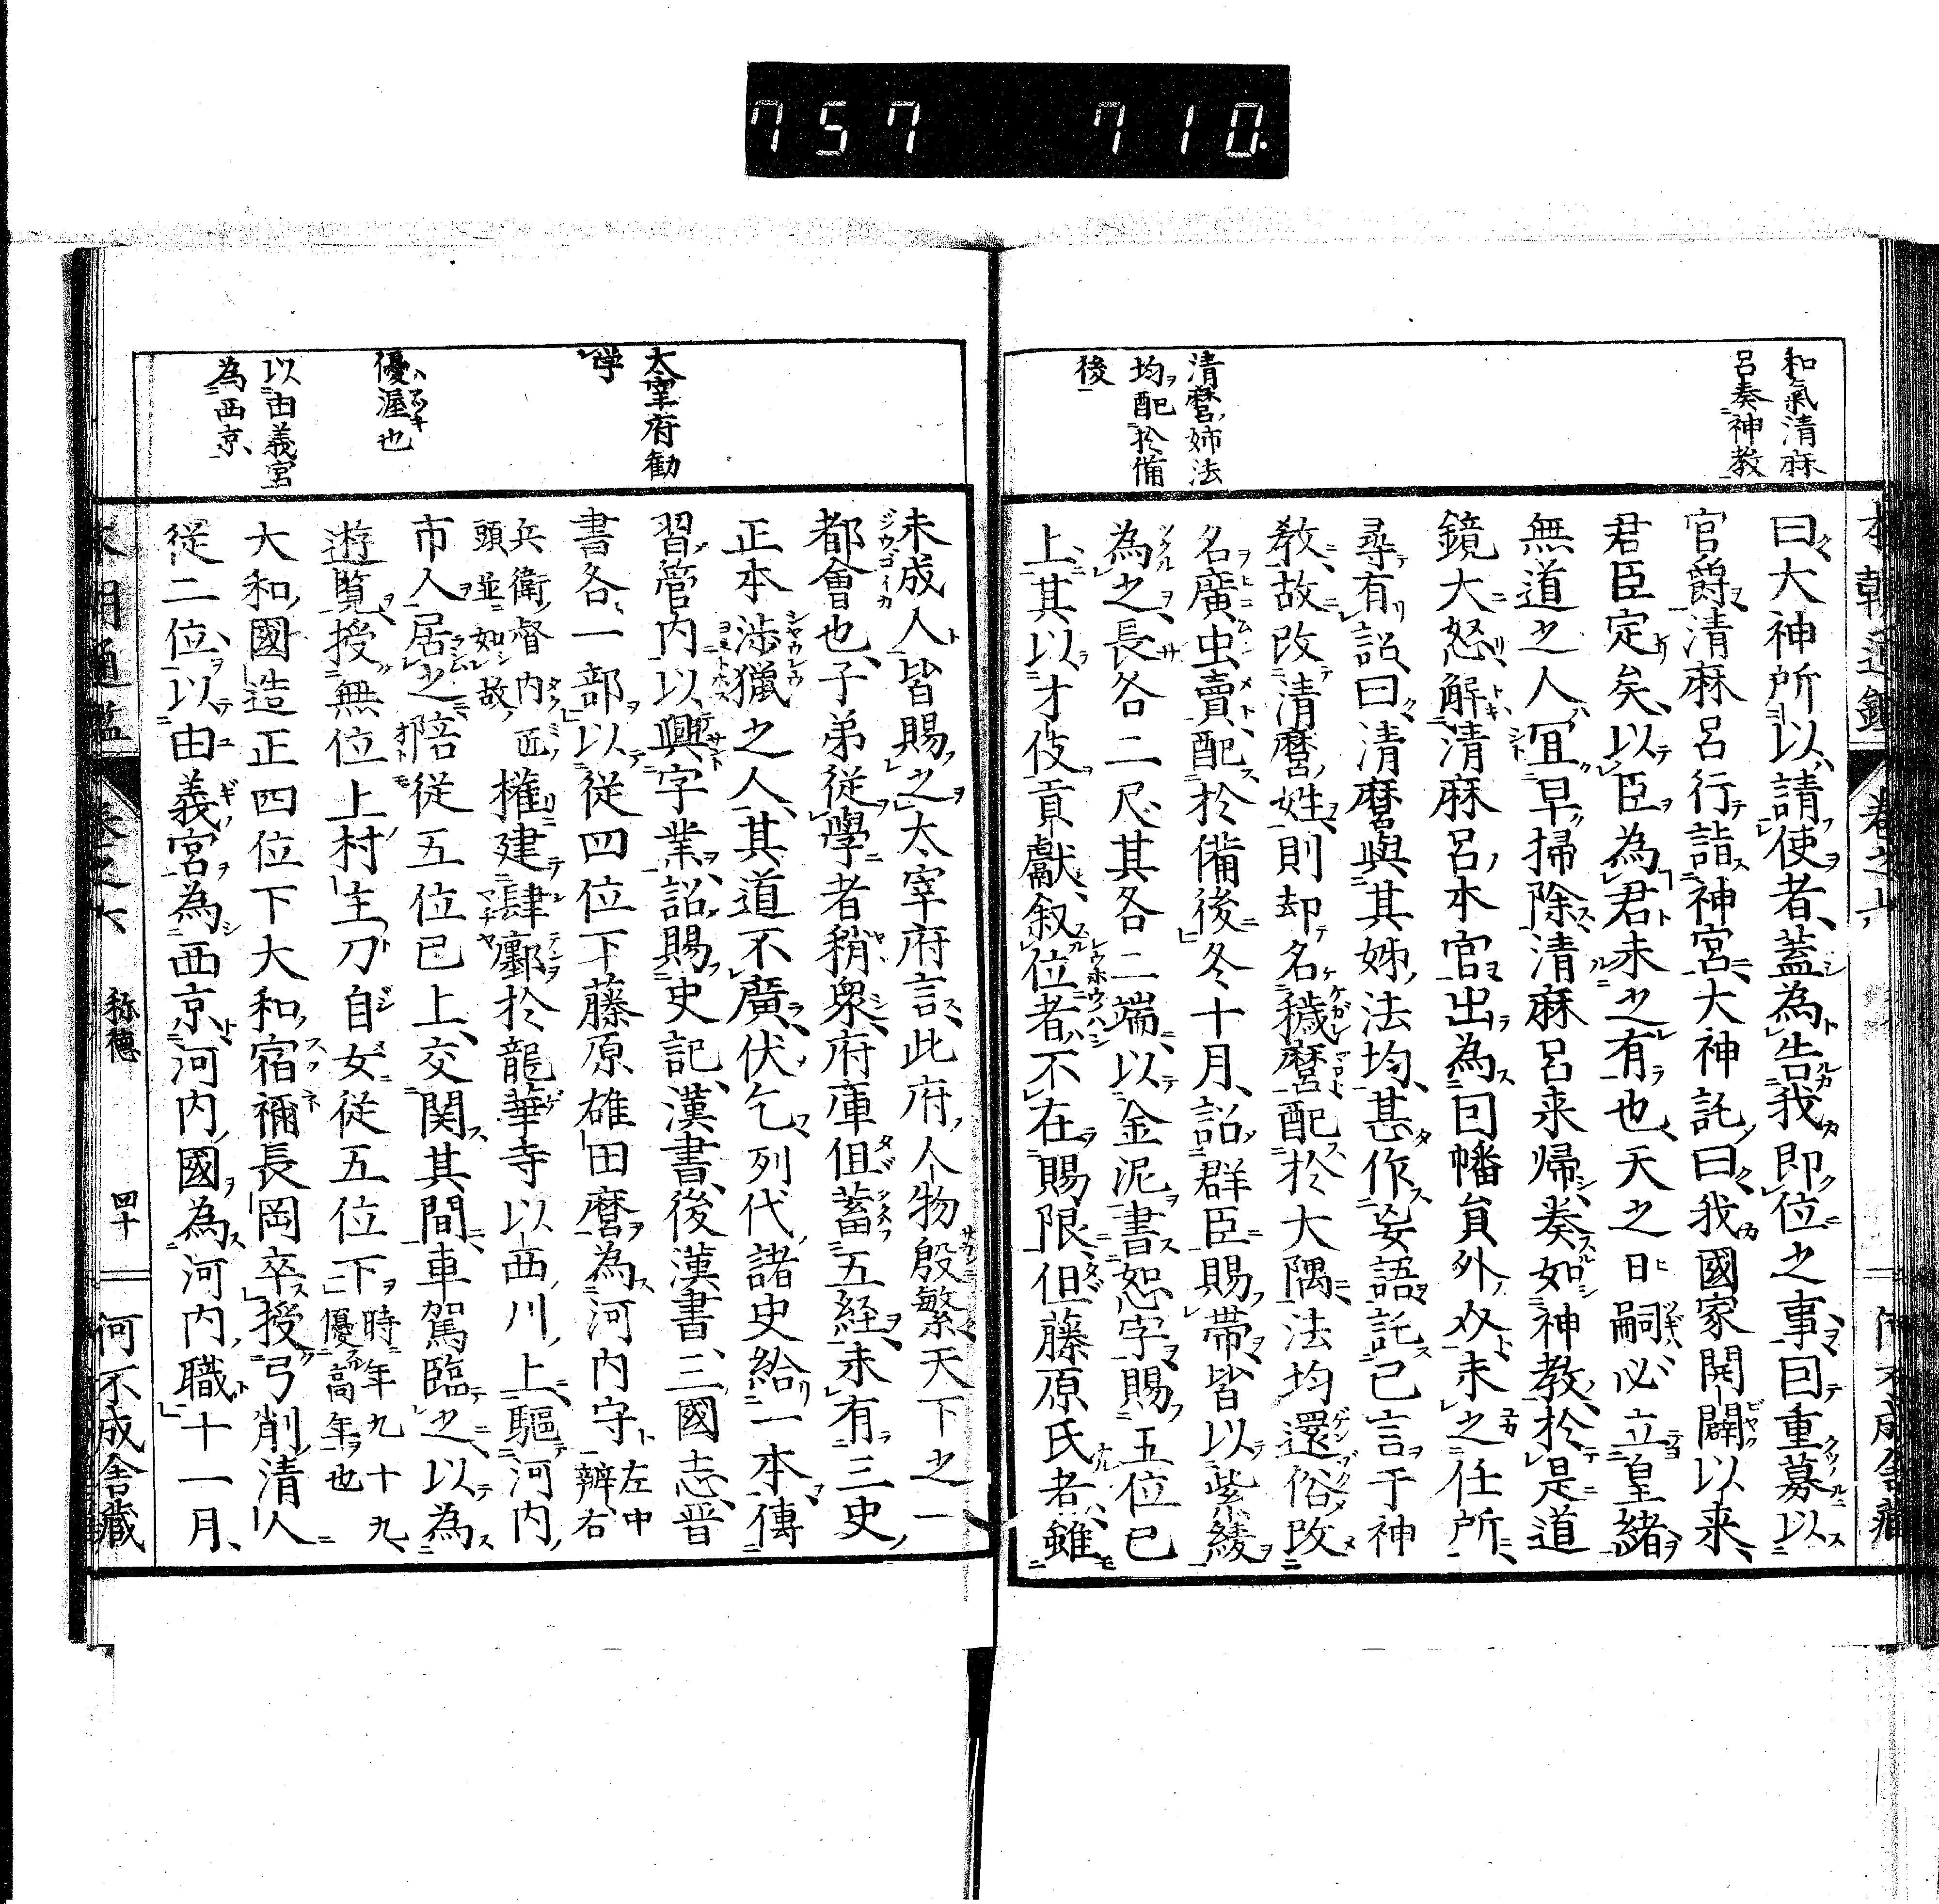 757 710.
和氣清麻
呂奏神教
清麿姉法
均配於備
後
本朝通鑑 卷之 何不成舍藏
曰大神所以請使者、蓋為告我即位之事、因重募以
官爵、清麻呂行詣神宮、大神託曰、我國家開闢以来、
君臣定矣、以臣為君未之有也、天之日嗣必立皇緒、
無道之人冝早掃除、清麻呂来帰、奏如神教、於是道
鏡大怒、解清麻呂本官、出為因幡員外介、未之任所、
尋有詔曰、清麿與其姊法均、甚作妄語、託己言于神
教、故改清麿姓、則却名穢麿、配於大隅、法均還俗、改
名廣虫賣、配於備後、冬十月、詔群臣賜帶、皆以紫綾
為之、長各二尺、其各二端、以金泥書恕字、賜五位已
上、其以才伎貢獻、叙位者、不在賜限、但藤原氏者、雖
未成人、皆賜之、太宰府言、此府人物殷繁、天下之一
都會也、子弟従學者稍衆、府庫但蓄五経、未有三史
正本、渉獵之人、其道不廣、伏乞列代諸史給一本、傳
習管内、以興字業、詔賜史記、漢書、後漢書、三國志、晋
書各一部、以従四位下藤原雄田麿為河内守、左中辨右
兵衛督内匠頭並如故、權建肆廛於龍華寺以西川上、驅河内
市人居之、陪従五位已上、交関其間、車駕臨之、以為
遊覧、授無位上村主刀自女従五位下、時年九十九、優高年也
大和國造正四位下大和宿禰長岡卒、授弓削清人
従二位、以由義宮為西京、河内國為河内職、十一月、
太宰府勧
学
優渥也
以由義宮
為西京、
本朝通鑑 卷之六 称徳 四十 何不成舍藏